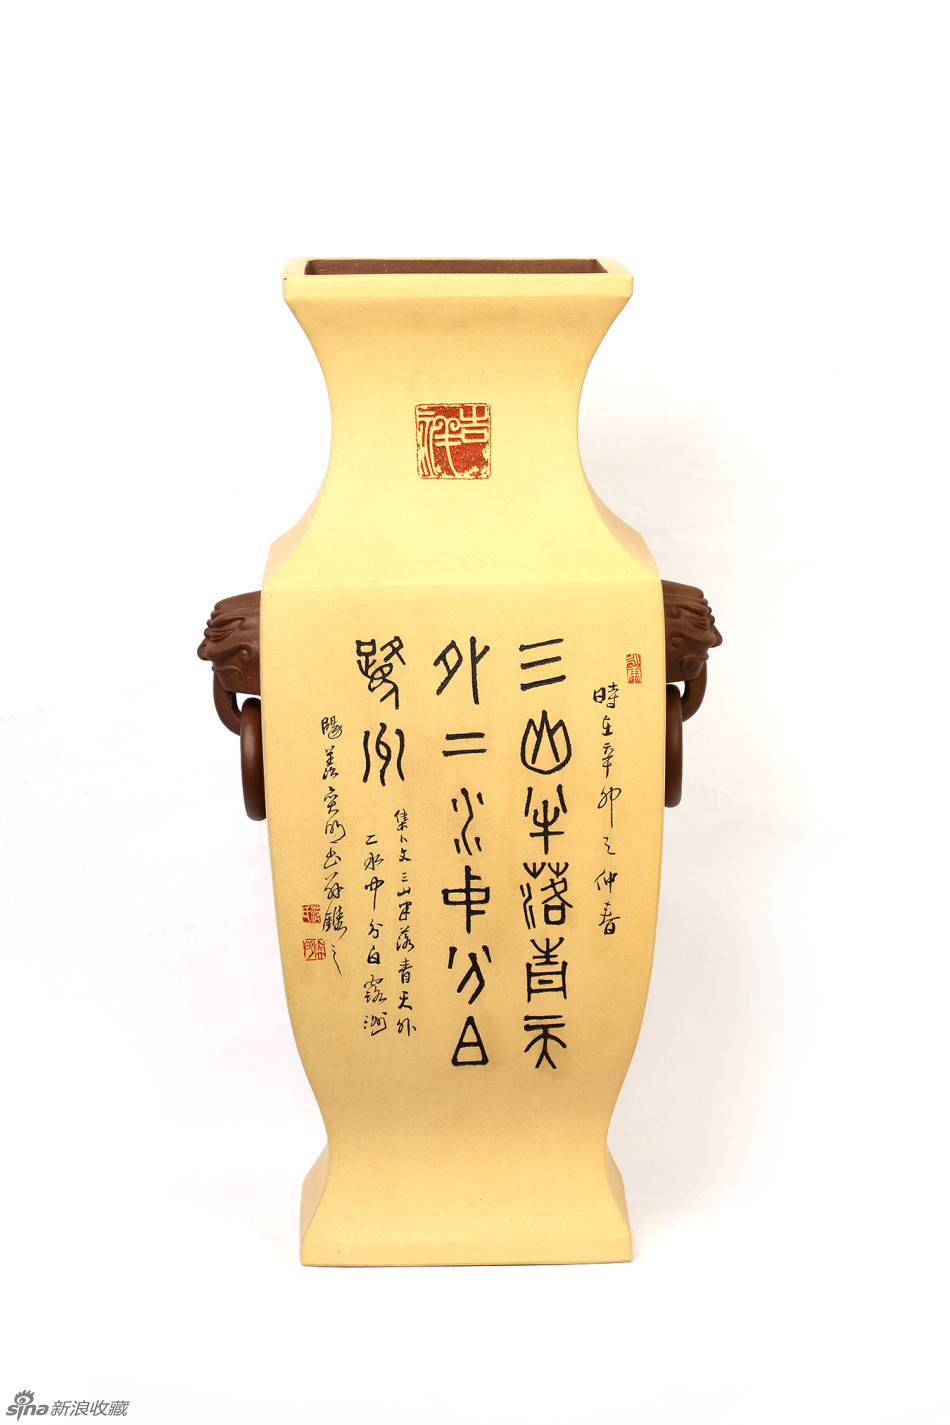 吉祥
時在辛卯之仲春
三山半落青天
外二水中分白
鹭洲
集卜文三山半落青天外
二水中分白露洲
陽羡
sina新浪收藏